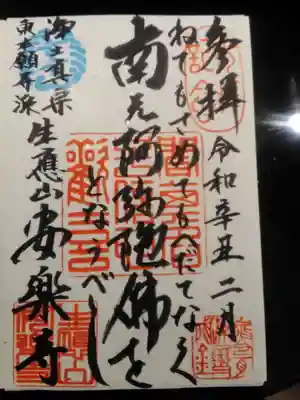 参拝 令和辛丑二月
ねてもさめてもへだてなく
南无阿弥陀佛を
となうべし
浄土真宗
東本願寺派
生應山 安樂寺